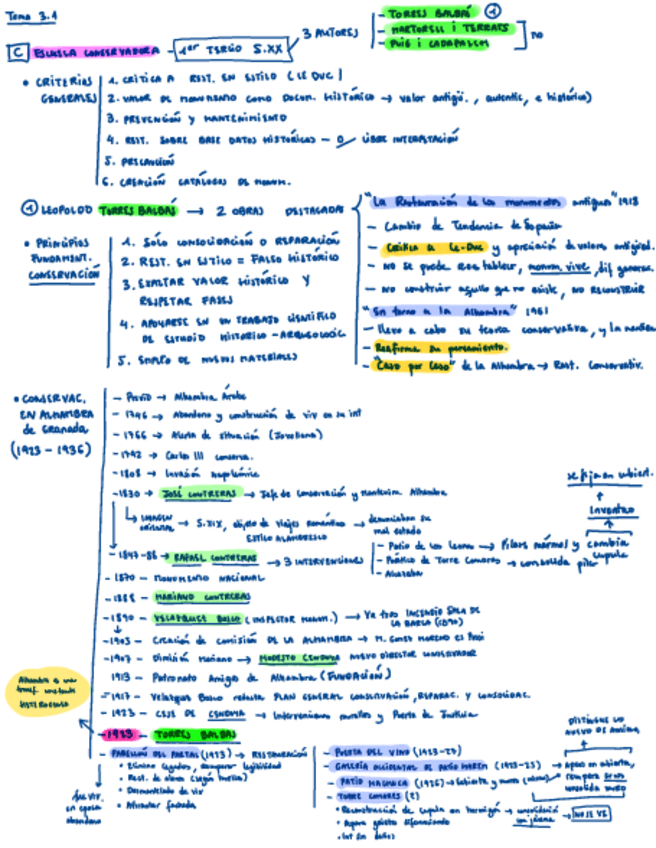 Tema 3.1
C ESCUELA CONSERVADORA - 1er TERCIO S.XX
3 AUTORES
- TORRES BALBÁS 1
- MARTORELL i TERRATS
- PUIG i CADAFALCH
no
• CRITERIOS GENERALES
1. CRÍTICA A REST. EN ESTILO (LE DUC)
2. VALOR DE MONUMENTO COMO DOCUM. HISTÓRICO → valor antigü., autentic, e histórico)
3. PREVENCIÓN Y MANTENIMIENTO
4. REST. SOBRE BASE DATOS HISTÓRICOS - O LIBRE INTERPRETACIÓN
5. PRECAUCIÓN
6. CREACIÓN CATÁLOGOS DE MONUM.
1 LEOPOLDO TORRES BALBÁS → 2 OBRAS DESTACADAS
"La Restauración de los monumentos antiguos" 1918
- Cambio de Tendencia de España
- Crítica a Le-Duc y apreciación de valores antigüed.
- No se puede restablecer, monum. vive, dif
- No construir aquello que no existe, NO RECONSTRUIR
"En torno a la Alhambra" 1961
- Lleva a cabo su teoría conservativa, y la
- Reafirma su pensamiento.
- "Caso por Caso" de la Alhambra → Rest. Conservativ.
• PRINCIPIOS FUNDAMENT. CONSERVACIÓN
1. SÓLO CONSOLIDACIÓN O REPARACIÓN
2. REST. EN ESTILO = FALSO HISTÓRICO
3. EXALTAR VALOR HISTÓRICO Y
RESPETAR FASES
4. APOYARSE EN UN TRABAJO CIENTÍFICO
DE ESTUDIO HISTÓRICO - ARQUEOLÓGIC
5. EMPLEO DE NUEVOS MATERIALES
• CONSERVAC. EN ALHAMBRA de GRANADA (1923 - 1936)
- Previo → Alhambra Árabe
- 1746 → Abandono y construcción de viv en su int
- 1766 → Alerta de situación (Jovellanos)
- 1792 → Carlos III conserva.
- 1808 → Invasión napoleónica
- 1830 → JOSÉ CONTRERAS → Jefe de Conservación y mantenim. Alhambra
IMAGEN → S.XIX, objeto de viajes románticos → denunciaban su mal estado
ESTILO ALHAMBRESCO
- 1847-88 → RAFAEL CONTRERAS → 3 INTERVENCIONES
- Patio de los Leones → Pilars mármol y cambia cúpula
- Pórtico de Torre Comares → consolida pilar
- Alcazaba
Inventro
se fija en
- 1870 - MONUMENTO NACIONAL
- 1888 - MARIANO CONTRERAS
- 1890 - VELÁZQUEZ BOSCO (INSPECTOR MONUM.) → Va tras INCENDIO SALA DE LA BARCA (1890)
- 1905 - Creación de comisión DE LA ALHAMBRA → M. GÓMEZ MORENO ES
- 1907 - Dimisión Mariano → MODESTO CENDOYA NUEVO DIRECTOR CONSERVADOR
1913 - Patronato Amigos de Alhambra (FUNDACIÓN)
- 1917 - Velázquez Bosco redacta PLAN GENERAL CONSERVACIÓN, REPARAC. Y CONSOLIDAC.
- 1923 - CESE DE CENDOYA → Intervenciones murallas y Puerta de Justicia
Alhambra es una
HETEROGÉNEO
- 1923 - TORRES BALBÁS
- PABELLÓN DEL PARTAL (1923) → RESTAURACIÓN
• Elimina legados, recuperar legibilidad
• Rest. de
• Desmontado de viv
• Afrontar fachada
fue viv.
en época
abandono
- PUERTA DEL VINO (1923-27)
- GALERÍA OCCIDENTAL DE PATIO HAREM (1923-25) → Apeos en cubierta,
- PATIO MACHUCA (1926) → Cubierta y muros
- TORRE COMARES (2)
• Reconstrucción de cúpula en hormigón → consolidación
→ NO SE VE
DISTINGUE LO NUEVO DE